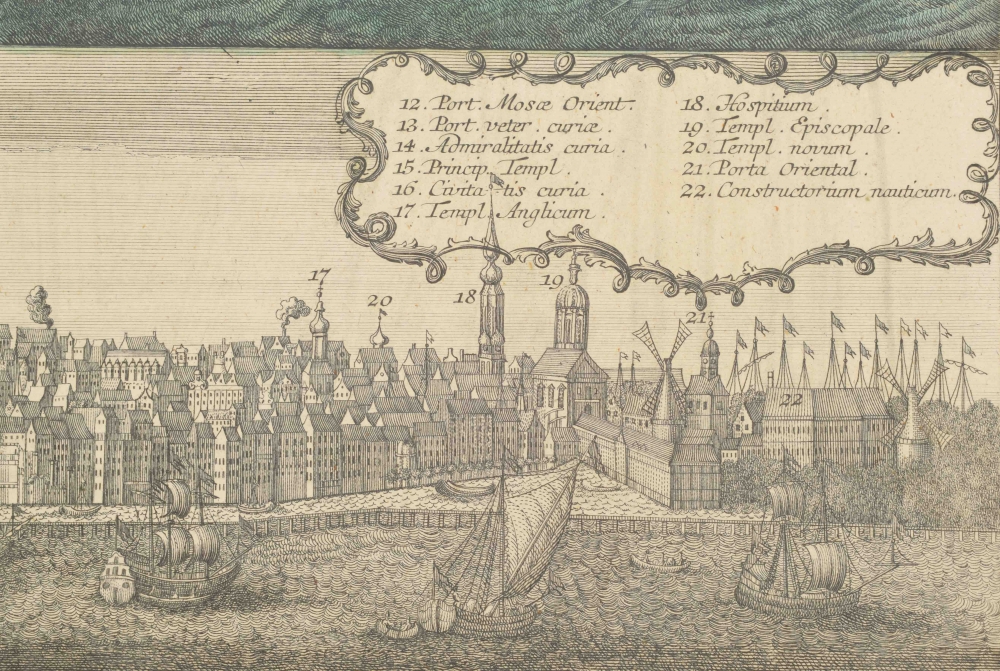 12. Port. Mosæ Orient.
13. Port. veter. curiæ.
14. Admiralitatis curia.
15. Princip. Templ.
16. Civitatis curia.
17. Templ. Anglicum.
18. Hospitium.
19. Templ. Episcopale.
20. Templ. novum.
21. Porta Oriental.
22. Constructorium nauticum.
17
20
18
19
21
22